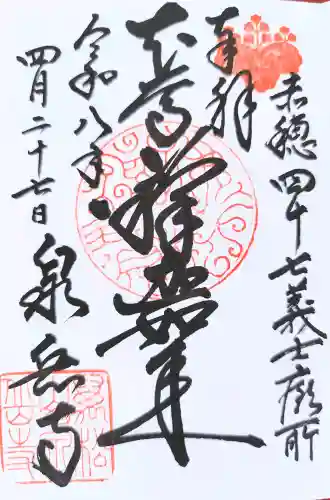 赤穂四十七義士廟所
奉拝
本尊釈迦如来
令和八年
四月二十七日
泉岳寺